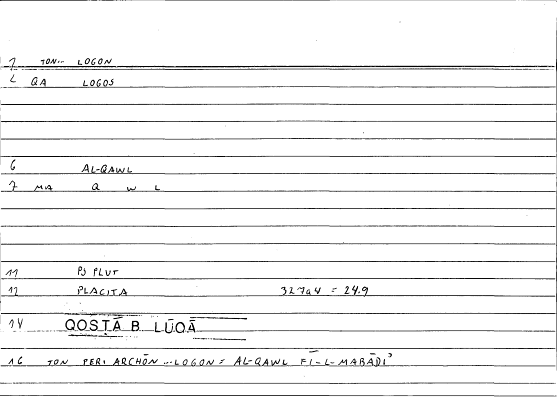 1 TON... LOGON
2 QA LOGOS
6 AL-QAWL
7 MA Q W L
11 PS PLUT
12 PLACITA 327a4 = 24.9
14 QOSṬĀ B. LŪQĀ
16 TON PERI ARCHŌN ... LOGON = AL-QAWL FĪ-L-MABĀDI'